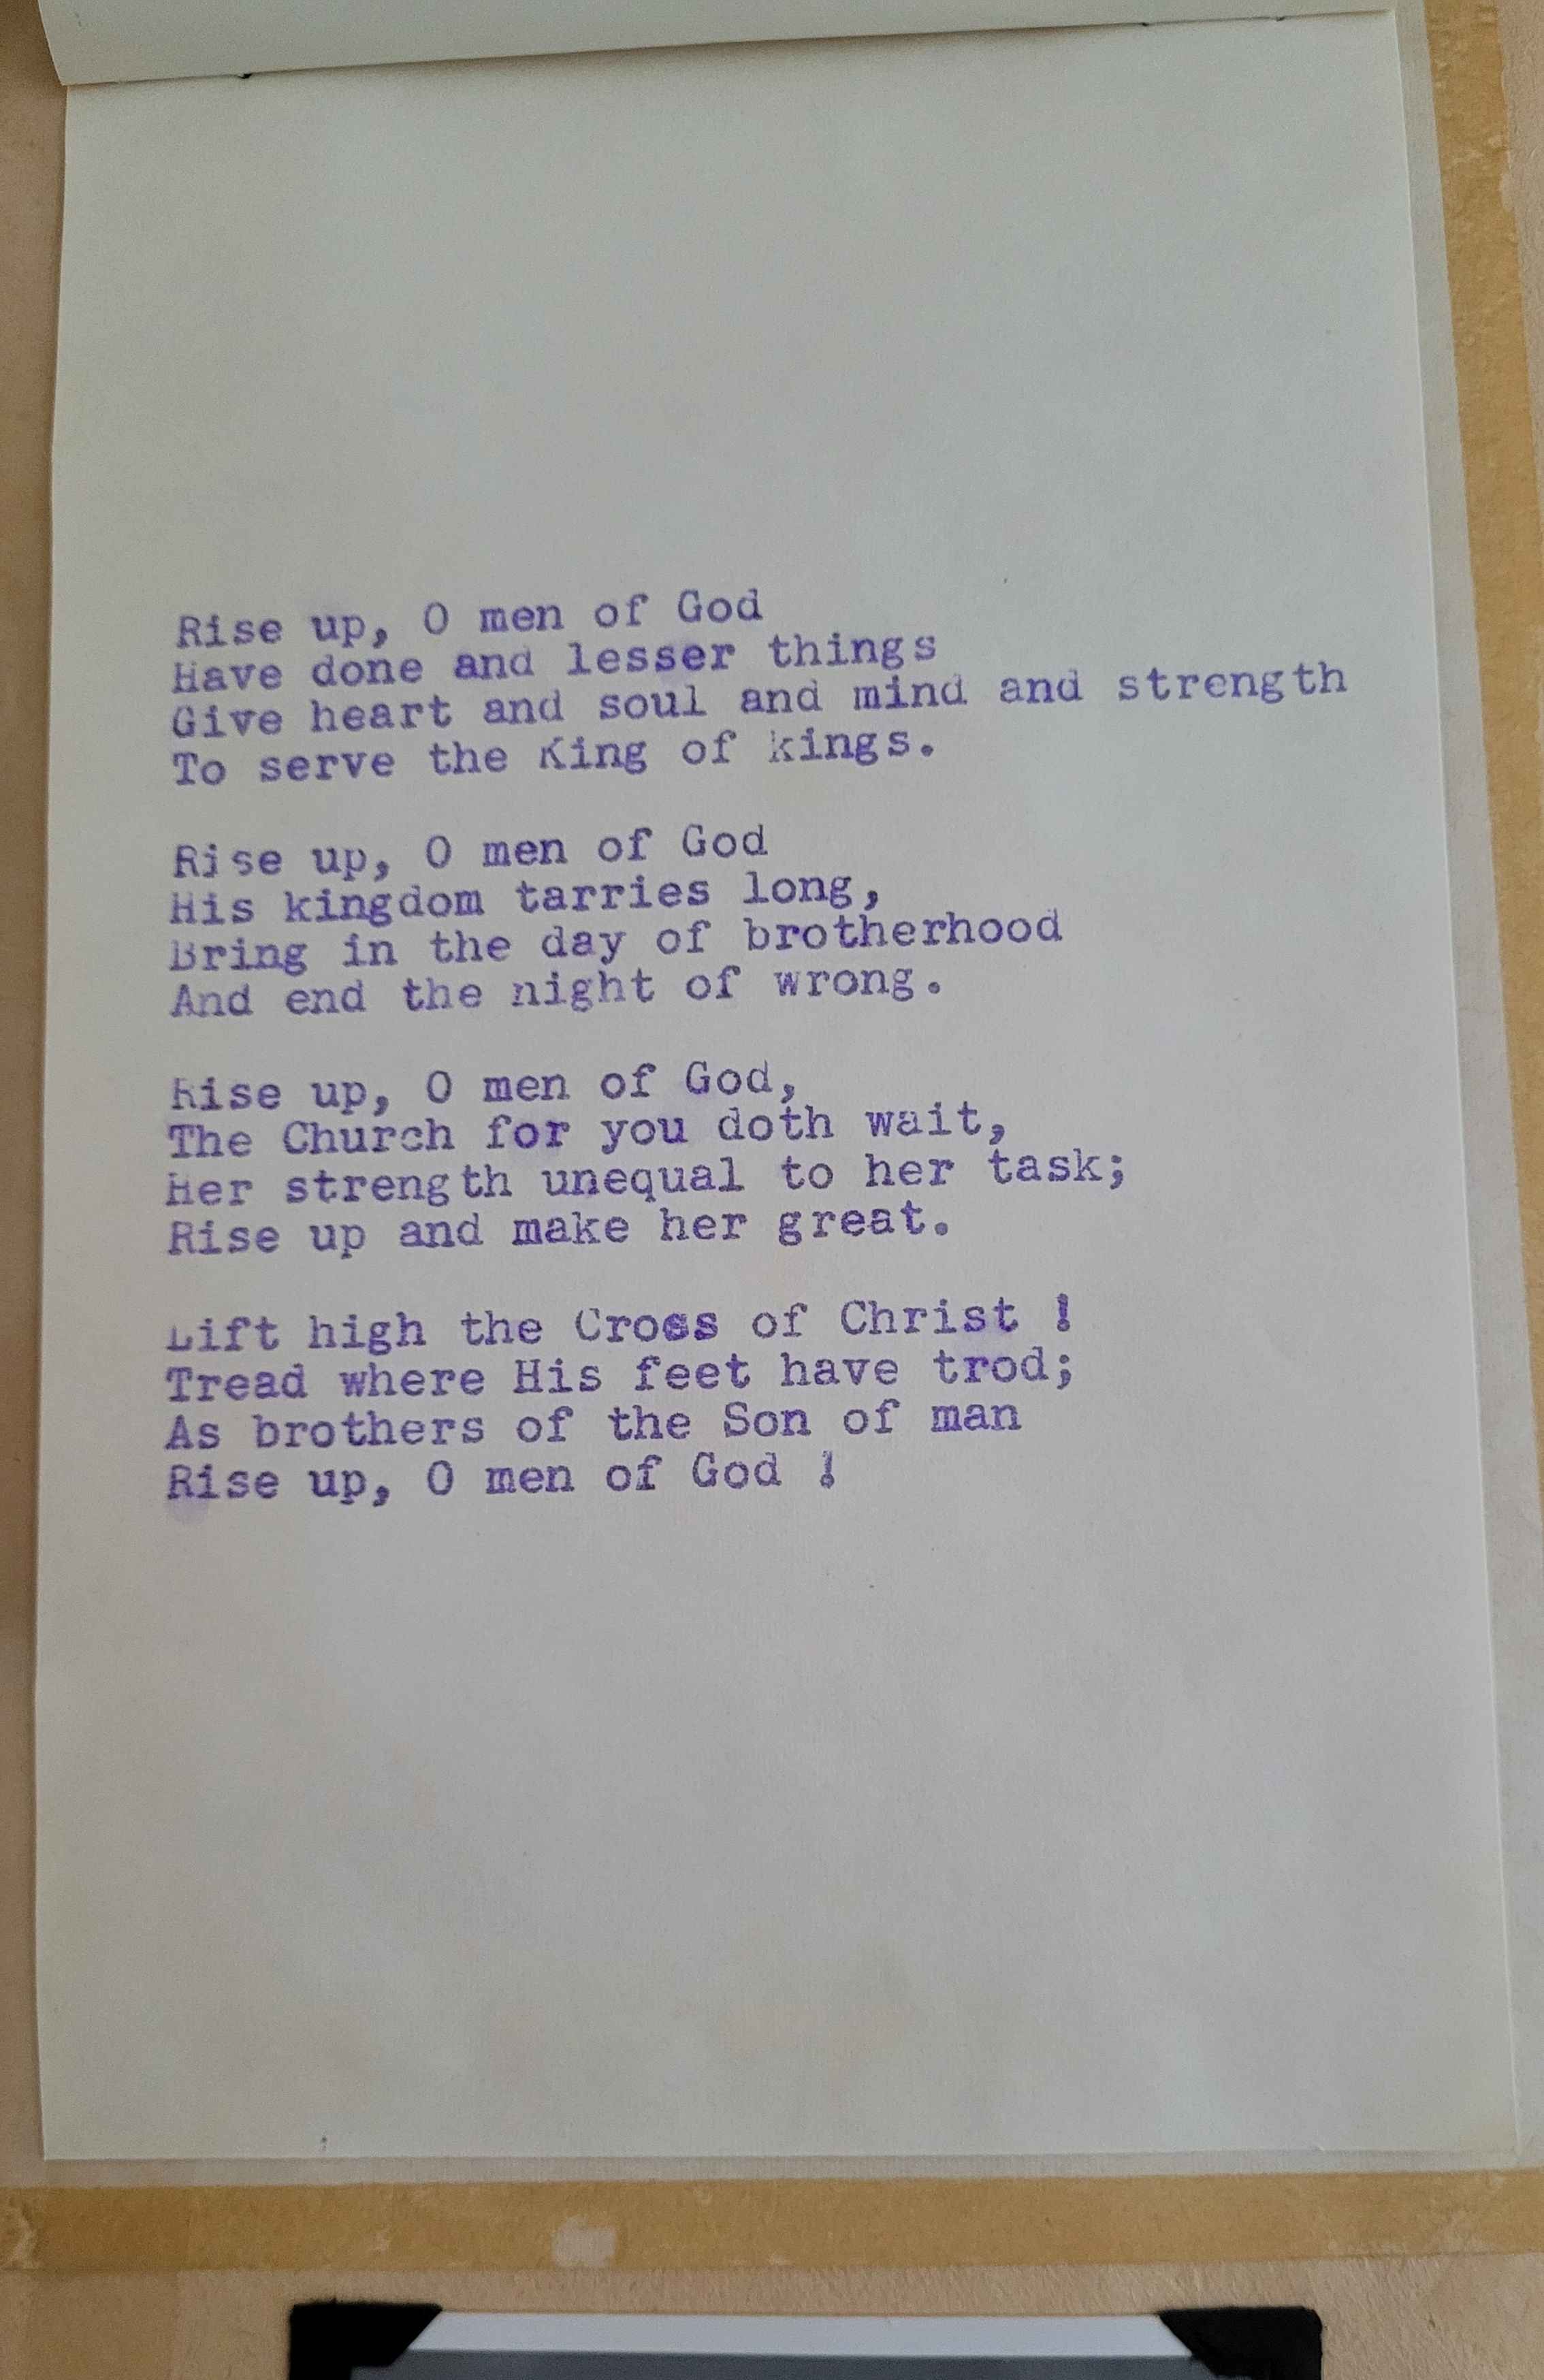 Rise up, O men of God
Have done and lesser things
Give heart and soul and mind and strength
To serve the King of kings.
Rise up, O men of God
His kingdom tarries long,
Bring in the day of brotherhood
And end the night of wrong.
Rise up, O men of God,
The Church for you doth wait,
Her strength unequal to her task;
Rise up and make her great.
Lift high the Cross of Christ !
Tread where His feet have trod;
As brothers of the Son of man
Rise up, O men of God !